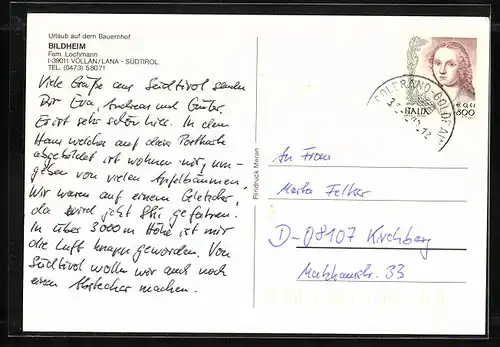 Urlaub auf dem Bauernhof
BILDHEIM
Fam. Lochmann
I-39011 VÖLLAN/LANA - SÜDTIROL
TEL. (0473) 58071
Viele Grüße aus Südtirol senden
Dir Eva, Andreas und Günter.
Es ist sehr schön hier. In dem
Haus welches auf dem Postkarte
abgebildet ist wohnen wir, um-
geben von vielen Apfelbäumen.
Wir waren auf einem Gletscher,
da wird jetzt Ski gefahren.
In über 3000 m Höhe ist mir
die Luft knapp geworden. Von
Südtirol wollen wir auch noch
einen Abstecher machen.
Flindruck Meran
ITALIA
800
An Frau
Marta Felker
D-08107 Kirchberg
33